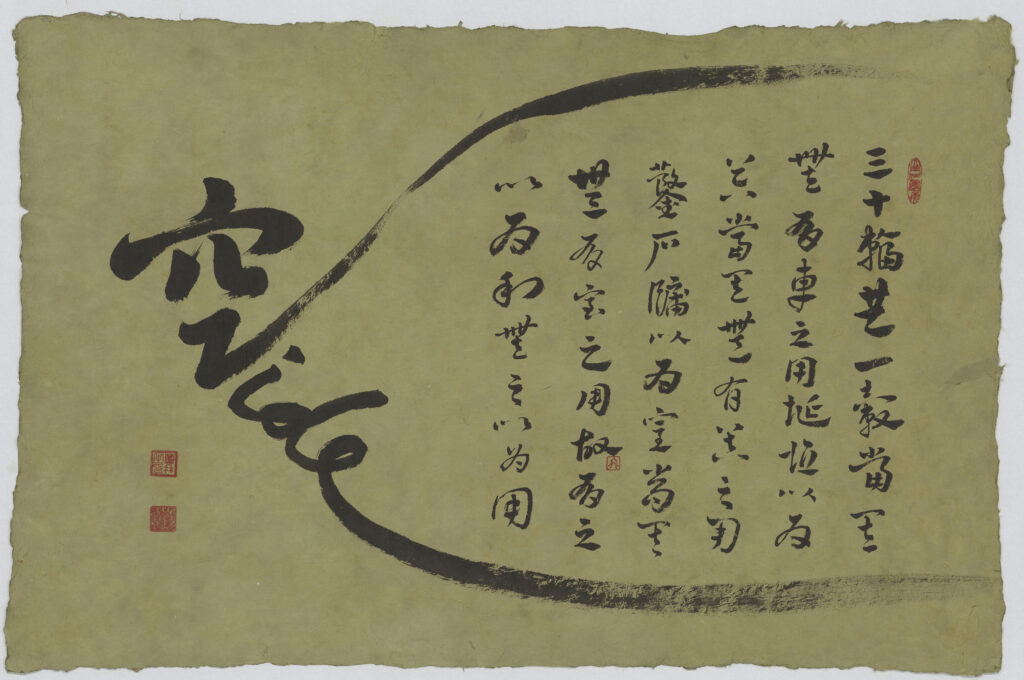 三十輻共一轂當其
無有車之用埏埴以為
器當其無有器之用
鑿戶牖以為室當其
無有室之用故有之
以為利無之以為用
空